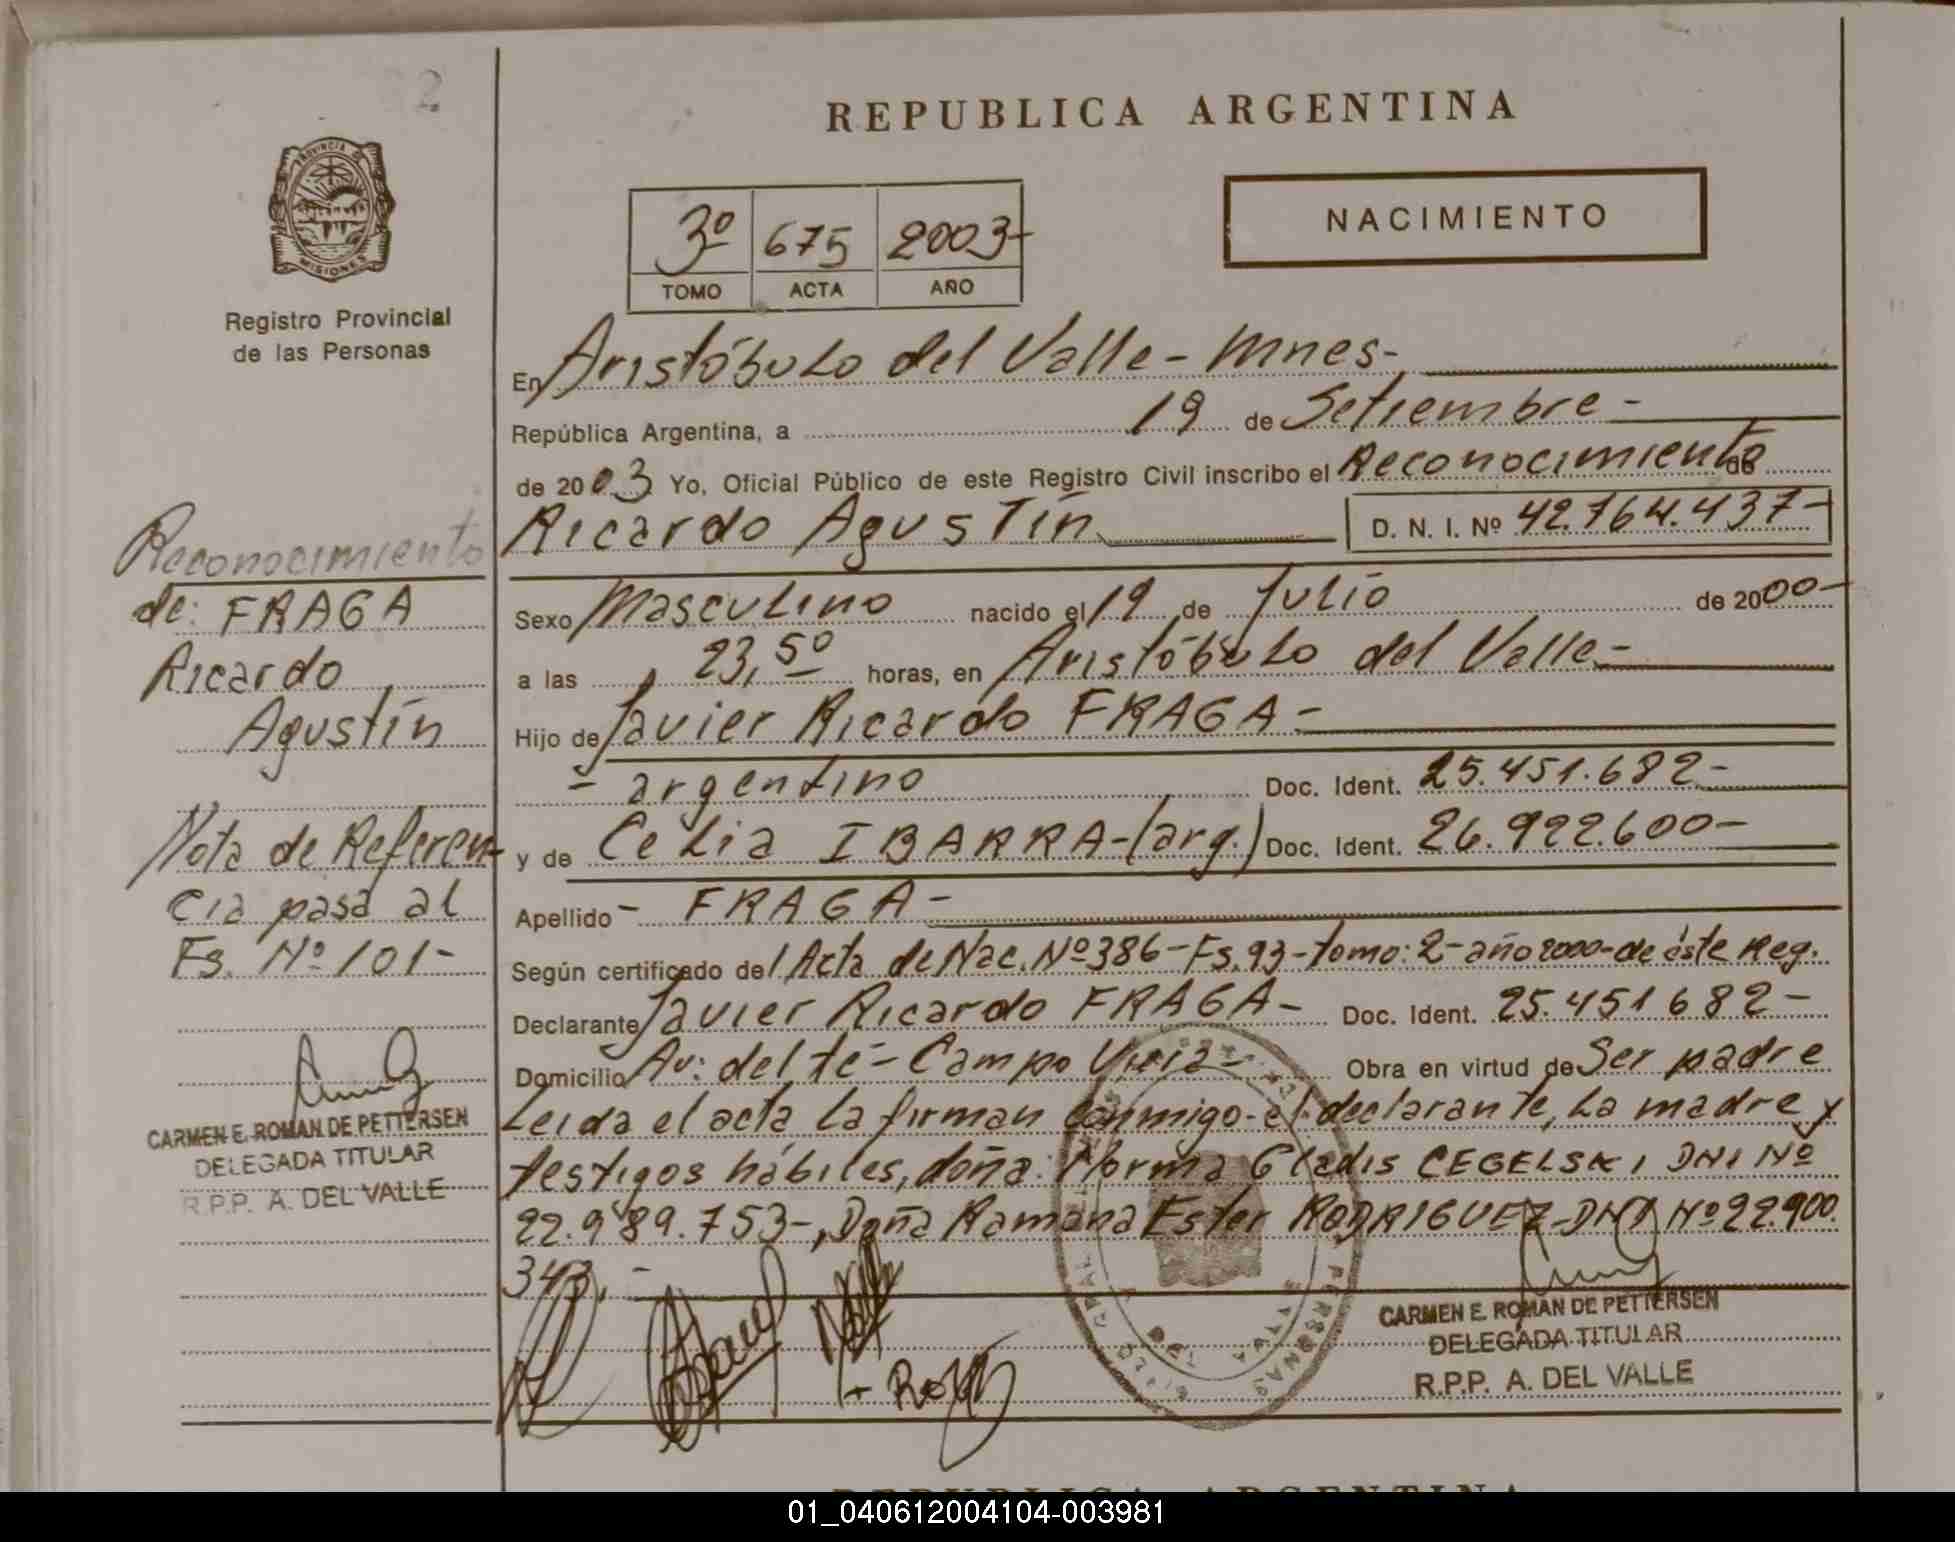 2
REPUBLICA ARGENTINA
PROVINCIA DE
MISIONES
Registro Provincial
de las Personas
3º 675 2003-
TOMO ACTA AÑO
NACIMIENTO
En Aristóbulo del Valle - Mnes-
República Argentina, a 19 de Setiembre -
de 2003 Yo, Oficial Público de este Registro Civil inscribo el Reconocimiento de
Ricardo Agustín D. N. I. Nº 42.764.437-
Sexo Masculino nacido el 19 de Julio de 2000-
a las 23,50 horas, en Aristóbulo del Valle-
Hijo de Javier Ricardo FRAGA-
- argentino Doc. Ident. 25.451.682-
y de Celia IBARRA-(arg.) Doc. Ident. 26.922.600-
Apellido - FRAGA-
Según certificado del Acta de Nac. Nº 386-Fs.93-tomo:2-año 2000-de éste Reg.
Declarante Javier Ricardo FRAGA- Doc. Ident. 25.451682-
Domicilio Av: del té- Campo Viera- Obra en virtud de Ser padre
Leída el acta la firman conmigo-el declarante, la madre y
testigos hábiles, doña: Norma Gladis CEGELSKI DNI Nº
22.989.753-, Doña Ramona Ester RODRIGUEZ-DNI Nº 22.900.
343.-
CARMEN E. ROMAN DE PETTERSEN
DELEGADA TITULAR
R.P.P. A. DEL VALLE
Reconocimiento
de: FRAGA
Ricardo
Agustín
Nota de Referen-
cia pasa al
Fs. Nº 101-
CARMEN E. ROMAN DE PETTERSEN
DELEGADA TITULAR
R.P.P. A. DEL VALLE
REPUBLICA ARGENTINA
01_040612004104-003981